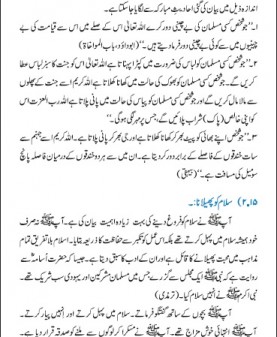 اندازہ ذیل میں بیان کی گئی احادیث مبارکہ سے لگایا جاسکتا ہے۔
۱۔ "جو شخص کسی مسلمان کی بے چینی دور کرے اللہ تعالیٰ اس کے صلے میں اس سے قیامت کی بے
چینیوں میں سے کوئی بے چینی دور فرما دیتے ہیں۔" (ابوداؤد، باب المواخاۃ)
۲۔ "جو شخص کسی مسلمان کو لباس کی ضرورت میں کپڑا پہناتا ہے اللہ تعالیٰ اس کو جنت کا سبز لباس عطا
کریں گے۔ جو شخص کسی مسلمان کو بھوک کی حالت میں کھانا کھلاتا ہے۔ اللہ کریم اسے جنت کے پھلوں
سے مالا مال کریں گے اور جو شخص کسی مسلمان کو پیاس کی حالت میں پانی پلاتا ہے اللہ رب العزت اس
کو اپنی خالص (پاک) شراب پلائیں گے، جس پر مہر لگی ہوگی۔"
۳۔ "جو شخص اپنے بھائی کو پیٹ بھر کر کھانا کھلاتا ہے اور پانی پلاتا ہے۔ اللہ کریم اسے جہنم سے
سات خندقوں کے فاصلے کے برابر دور کر دیتا ہے۔ ان میں سے ہر دو خندقوں کے درمیان فاصلہ پانچ
سو میل کی مسافت ہے۔" (بیہقی)
۲.۱۵) سلام کو پھیلانا:۔
آپ ﷺ نے سلام کو فروغ دینے کی بہت زیادہ اہمیت بیان کی ہے۔ آپ ﷺ نہ صرف
خود ہمیشہ سلام میں پہل کرتے تھے بلکہ اس عمل کو تکبر سے حفاظت کا ذریعہ بتایا۔ اسلام بلا تفریق تمام
مذاہب میں محبت پھیلاتا ہے اور ان کے ادب کا سبق دیتا ہے۔ جیسا کہ حضرت اسامہؓ سے
روایت ہے کہ نبی ﷺ ایک مجلس سے گزرے جس میں مسلمان مشرکین اور یہودی سب شریک تھے۔
نبی اکرم ﷺ نے انہیں سلام کیا۔ (ترمذی)
آپ ﷺ بچوں کے ساتھ گفتگو فرماتے۔ سلام میں پہل کرتے اور انہیں پیار کرتے۔
آپ ﷺ انتہائی خوش مزاج تھے۔ آپ ﷺ نے مسکرا کر لوگوں سے ملنے کو صدقہ قرار دیا ہے۔